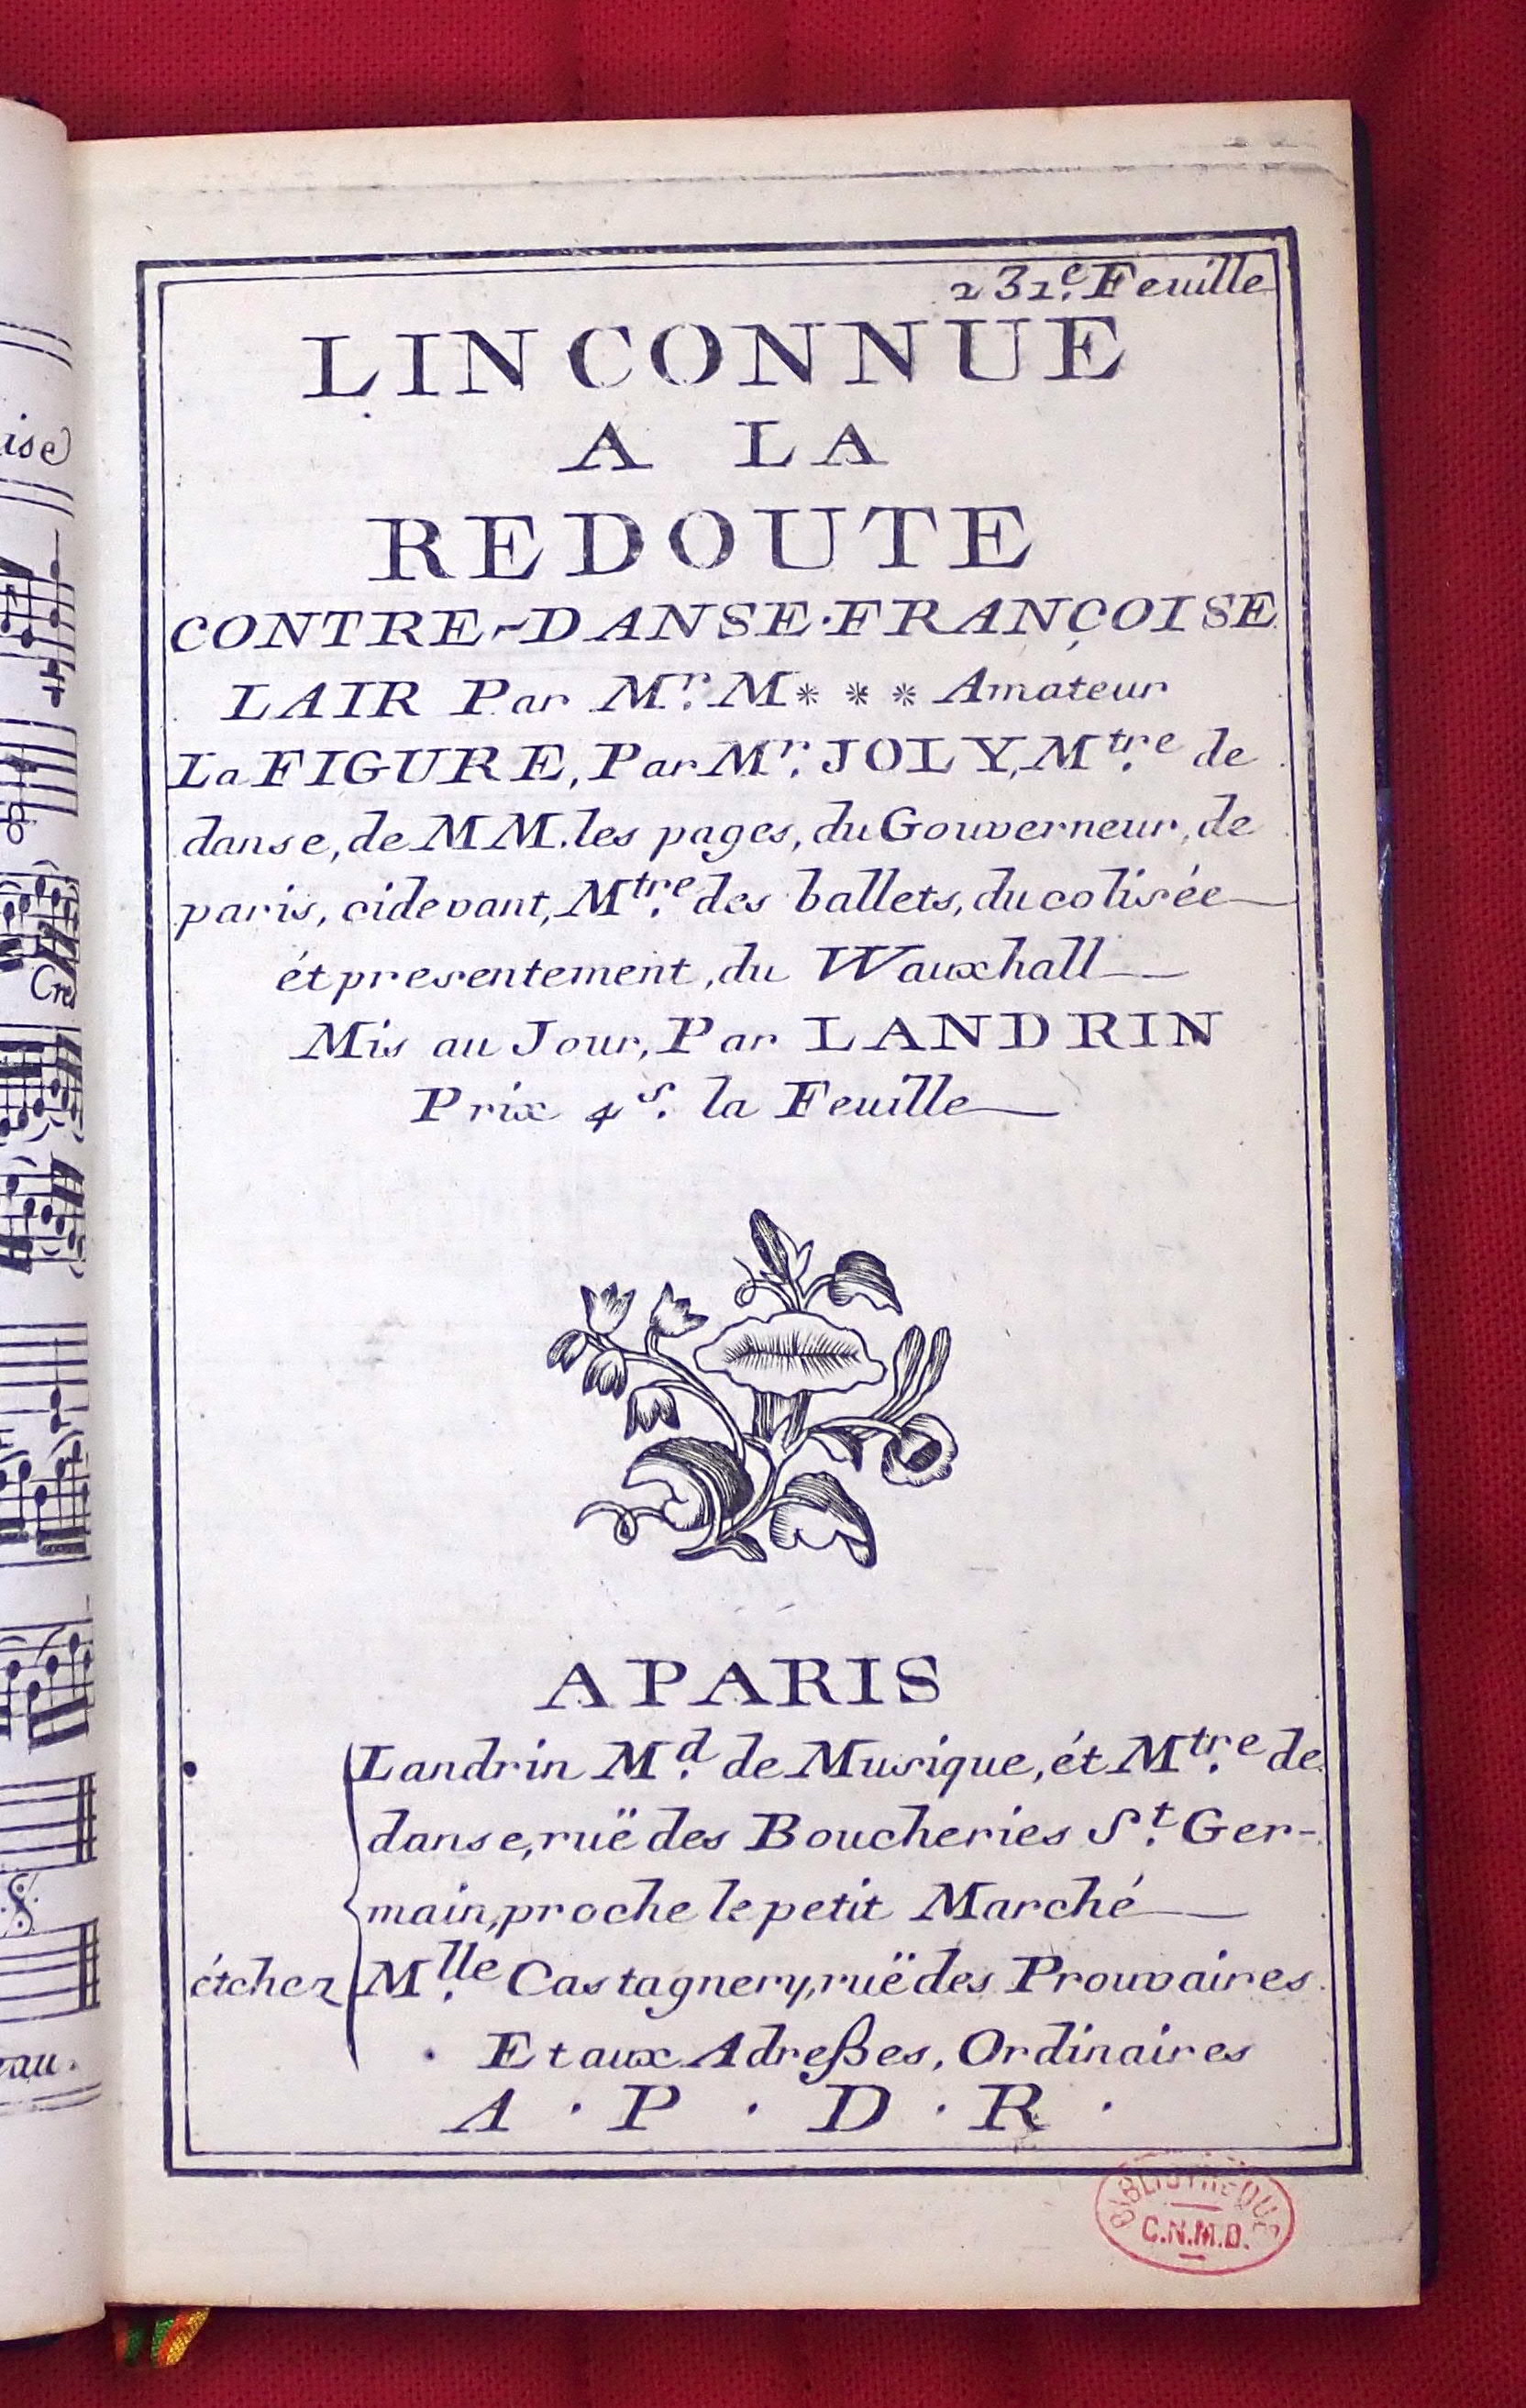 232.e Feuille
LINCONNUE
A LA
REDOUTE
CONTRE-DANSE·FRANÇOISE
LAIR Par Mr. M*** Amateur
La FIGURE, Par Mr. JOLY, Mtre. de
danse, de MM. les pages, du Gouverneur, de
paris, cidevant, Mtre. des ballets, du colisée
ét presentement, du Wauxhall
Mis au Jour, Par LANDRIN
Prix 4 s. la Feuille
A PARIS
Landrin Md. de Musique, ét Mtre. de
danse, ruë des Boucheries St. Ger-
main, proche le petit Marché
ét chez Mlle. Castagnery, ruë des Prouvaires
Et aux Adreßes, Ordinaires
A · P · D · R ·
BIBLIOTHEQUE
C.N.M.D.